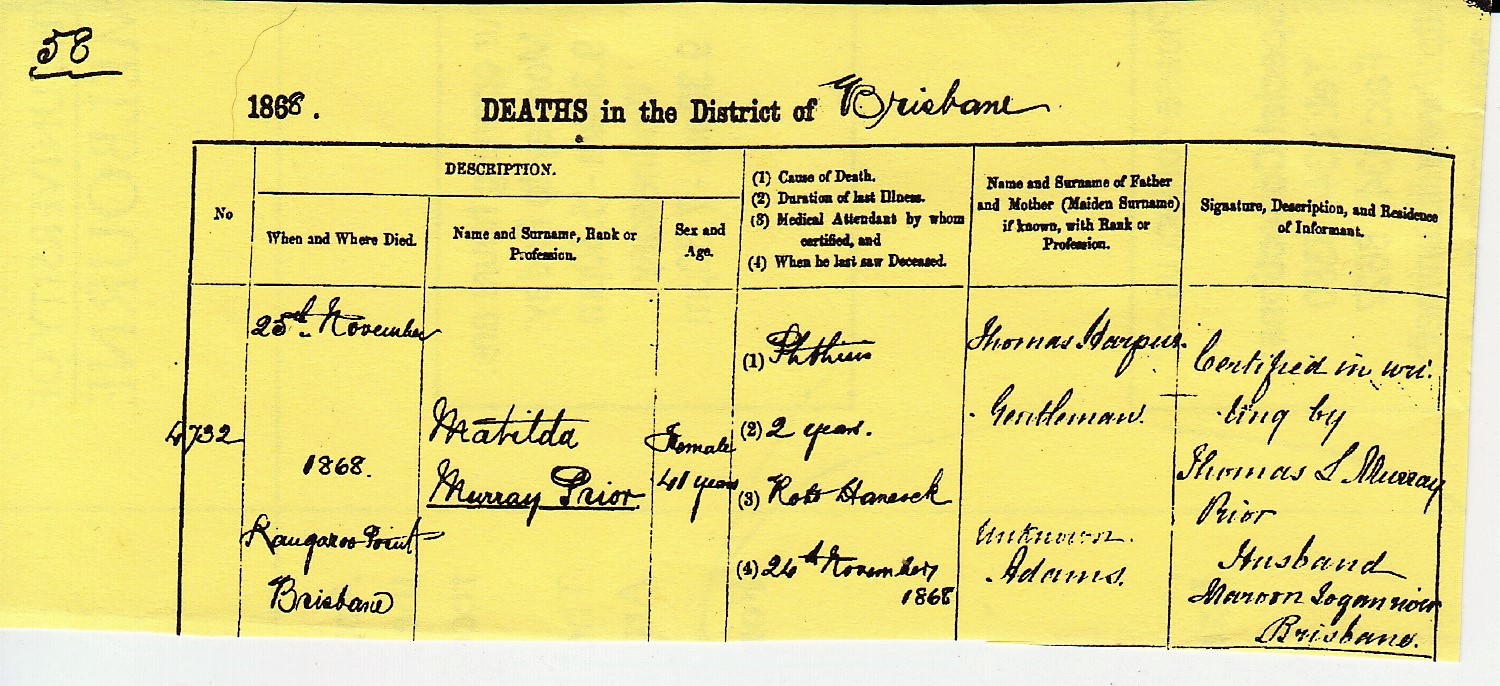 58
1868. DEATHS in the District of Brisbane
No
DESCRIPTION.
When and Where Died.
Name and Surname, Rank or
Profession.
Sex and
Age.
(1) Cause of Death.
(2) Duration of last Illness.
(3) Medical Attendant by whom
certified, and
(4) When he last saw Deceased.
Name and Surname of Father
and Mother (Maiden Surname)
if known, with Rank or
Profession.
Signature, Description, and Residence
of Informant.
4732
25th November
1868.
Kangaroo Point
Brisbane
Matilda
Murray Prior
Female
41 years
(1) Phthisis
(2) 2 years.
(3) Robt Hancock
(4) 24th November
1868
Thomas Harpur.
Gentleman.
Unknown.
Adams.
Certified in wri.
ting by
Thomas L Murray
Prior
Husband
Maroon Logan
Brisbane.